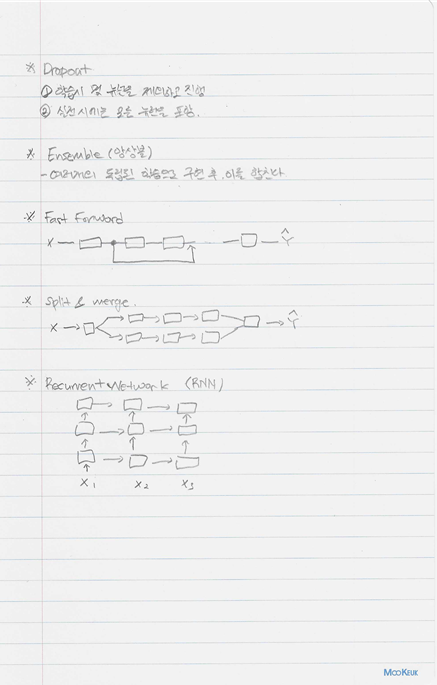 ※ Dropout
① 학습시 몇 뉴런을 제외하고 진행
② 실전시에는 모든 뉴런을 포함.
※ Ensemble (앙상블)
- 여러개의 독립된 학습으로 구현 후, 이를 합친다
※ Fast Forward
X ... Ŷ
※ Split & merge.
X Ŷ
※ Recurrent Network (RNN)
X1 X2 X3
MOOKEUK